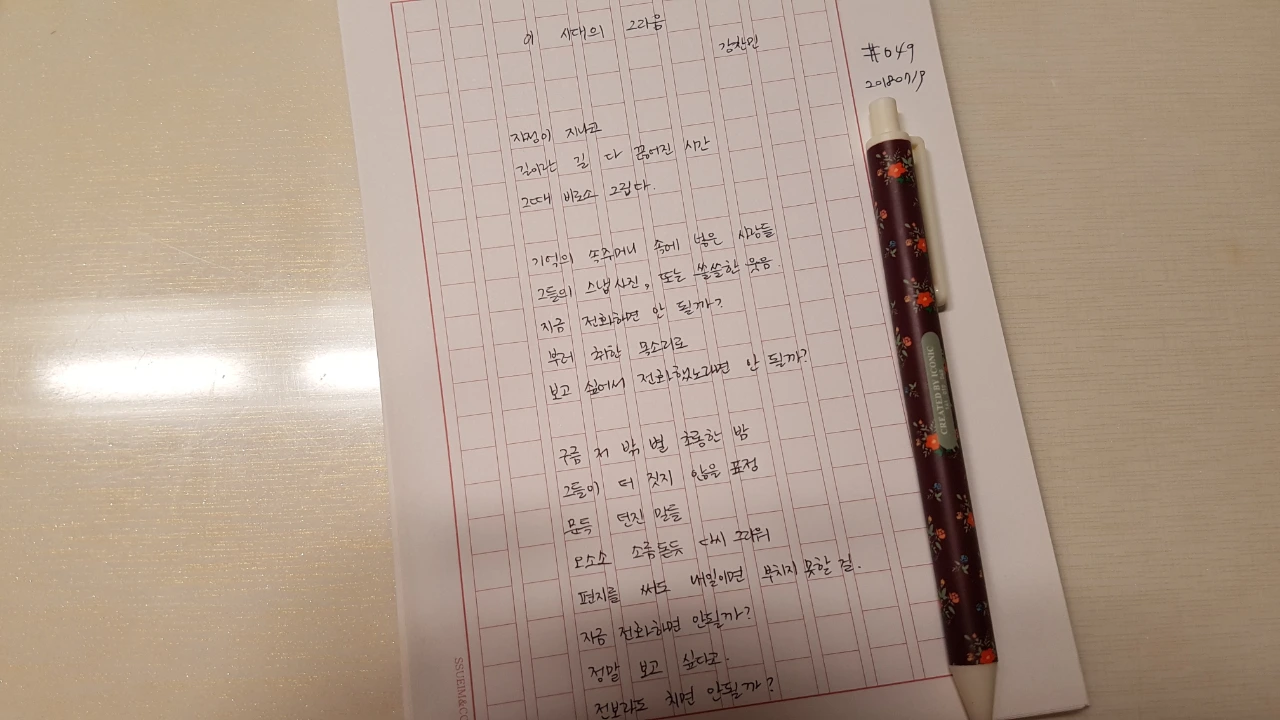 이 시대의 그리움
강찬인
#049
20180719
자정이 지나고
길이란 길 다 끊어진 시간
그때 비로소 그립다.
기억의 속주머니 속에 넣은 사람들
그들의 스냅사진, 또는 쓸쓸한 웃음
지금 전화하면 안 될까?
부러 취한 목소리로
보고 싶어서 전화했노라면 안 될까?
구름 저 밖 별 초롱한 밤
그들이 더 짓지 않을 표정
문득 던진 말들
오소소 소름돋듯 다시 그리워
편지를 써도 내일이면 부치지 못할 걸.
지금 전화하면 안될까?
정말 보고 싶다고.
전보라도 치면 안될까?
CREATED BY ICONIC